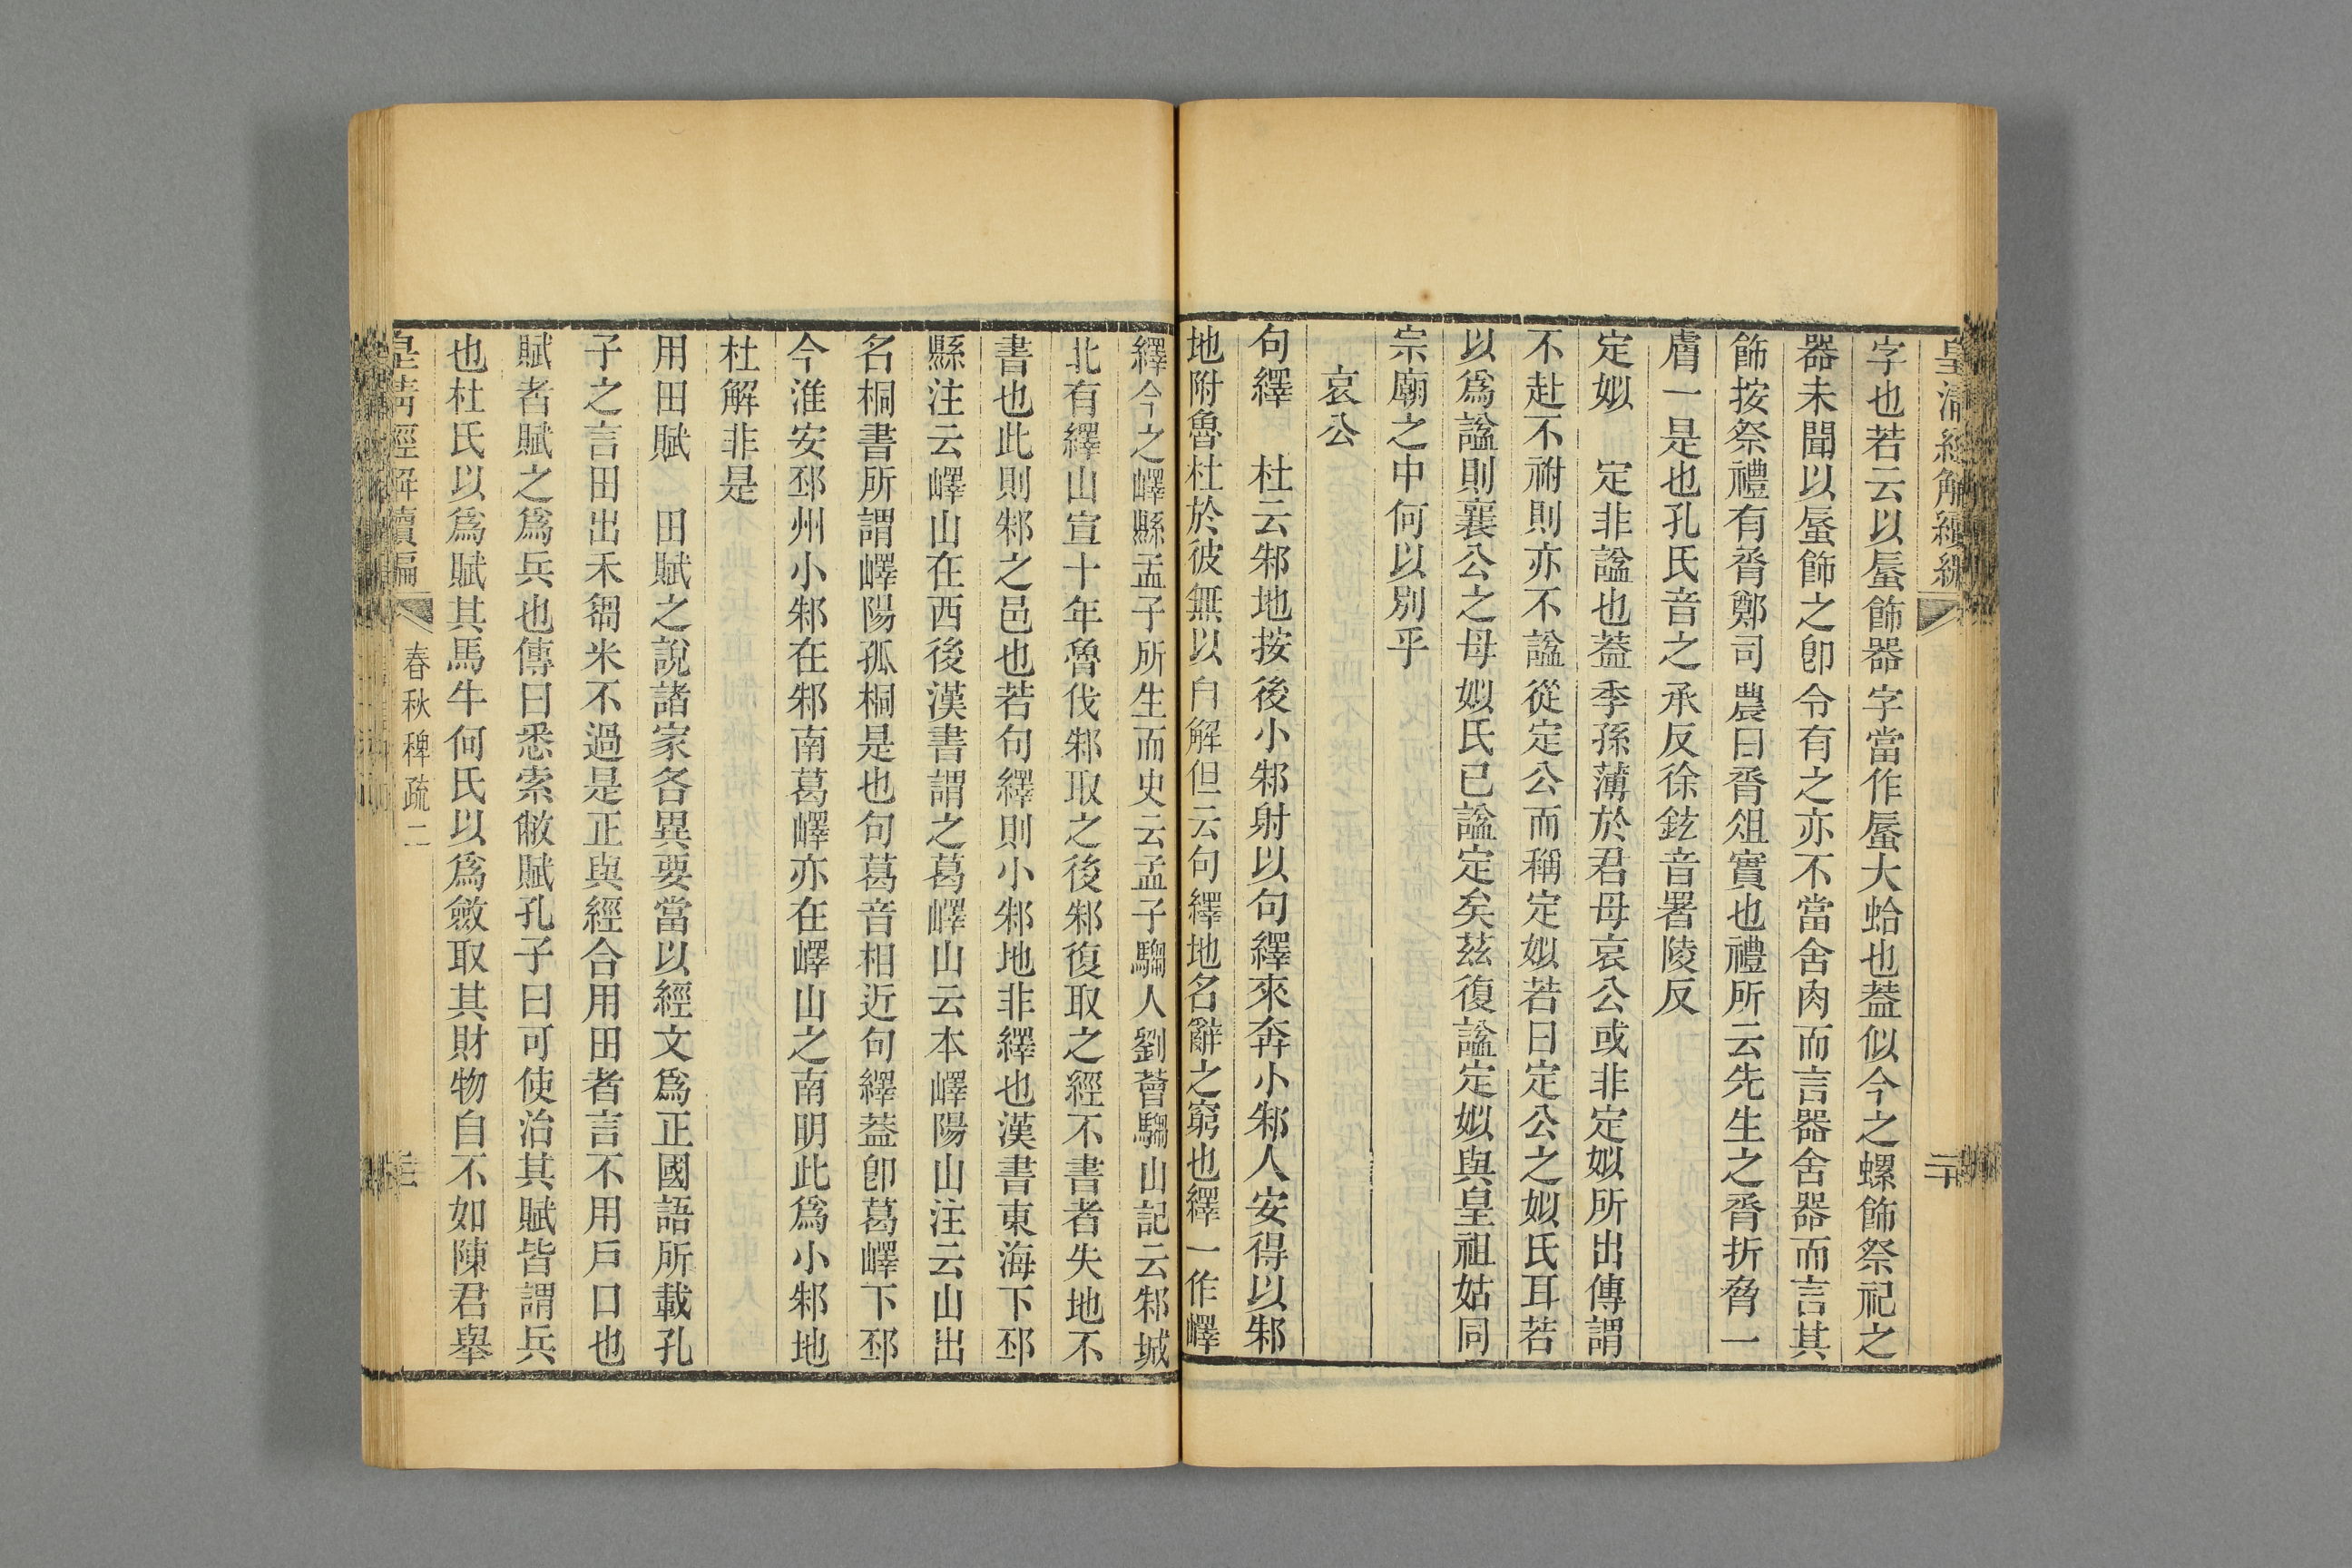 皇清經解續編
二十
字也若云以蜃飾器字當作蜃大蛤也葢似今之螺飾祭祀之
器未聞以蜃飾之卽令有之亦不當舍肉而言器舍器而言其
飾按祭禮有脀鄭司農曰脀俎實也禮所云先生之脀折脅一
膚一是也孔氏音之承反徐鉉音署陵反
定姒　定非諡也葢季孫薄於君母哀公或非定姒所出傳謂
不赴不祔則亦不諡從定公而稱定姒若曰定公之姒氏耳若
以爲諡則襄公之母姒氏已諡定矣茲復諡定姒與皇祖姑同
宗廟之中何以別乎
哀公
句繹　杜云邾地按後小邾射以句繹來奔小邾人安得以邾
地附魯杜於彼無以自解但云句繹地名辭之窮也繹一作嶧
繹今之嶧縣孟子所生而史云孟子騶人劉薈騶山記云邾城
北有繹山宣十年魯伐邾取之後邾復取之經不書者失地不
書也此則邾之邑也若句繹則小邾地非繹也漢書東海下邳
縣注云嶧山在西後漢書謂之葛嶧山云本嶧陽山注云山出
名桐書所謂嶧陽孤桐是也句葛音相近句繹葢卽葛嶧下邳
今淮安邳州小邾在邾南葛嶧亦在嶧山之南明此爲小邾地
杜解非是
用田賦　田賦之說諸家各異要當以經文爲正國語所載孔
子之言田出禾芻米不過是正與經合用田者言不用戶口也
賦者賦之爲兵也傳曰悉索敝賦孔子曰可使治其賦皆謂兵
也杜氏以爲賦其馬牛何氏以爲斂取其財物自不如陳君舉
皇清經解續編
春秋稗疏二